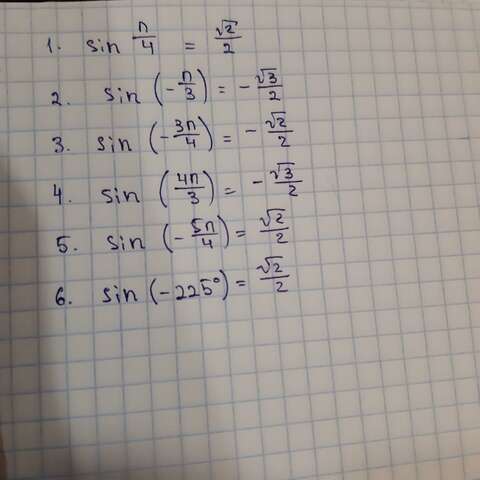 1. sin π/4 = √2/2
2. sin (-π/3) = -√3/2
3. sin (-3π/4) = -√2/2
4. sin (4π/3) = -√3/2
5. sin (-5π/4) = √2/2
6. sin (-225°) = √2/2